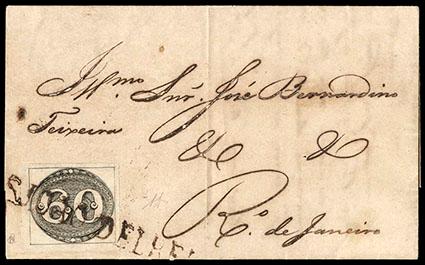 Illmo Snr. José Bernardino
Teixeira
& &
Ro. de Janeiro
60
DELREI